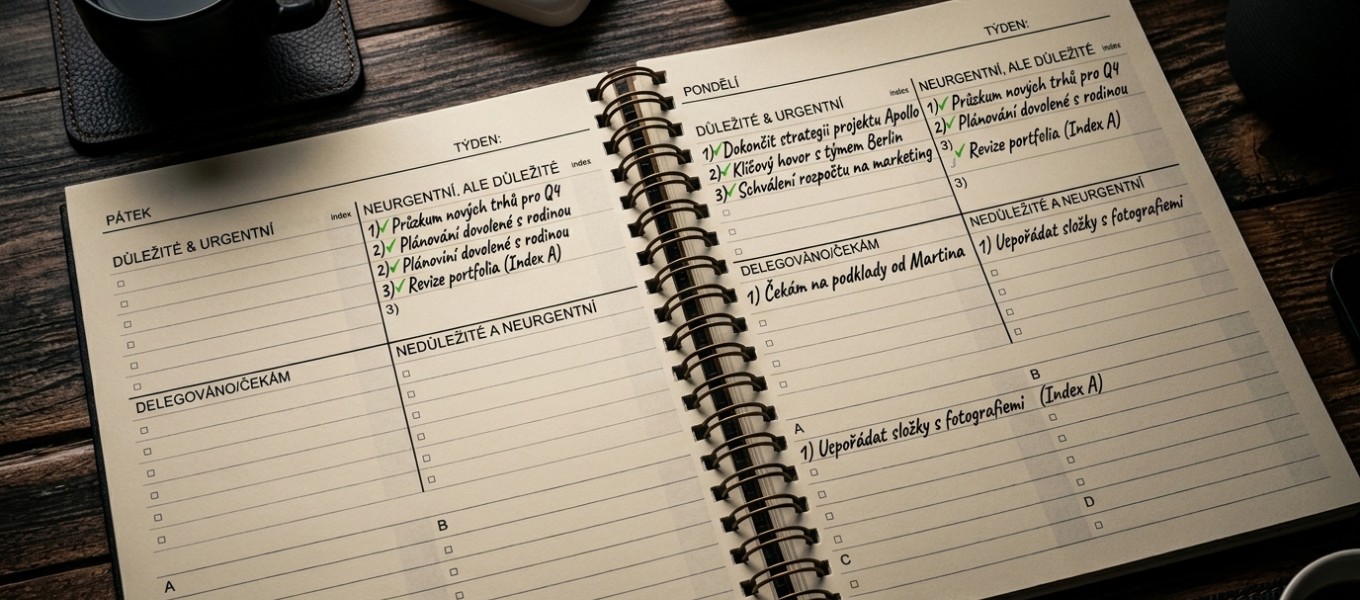 TÝDEN:
PÁTEK
DŮLEŽITÉ & URGENTNÍ
index
NEURGENTNÍ, ALE DŮLEŽITÉ
index
1)✓ Průzkum nových trhů pro Q4
2)✓ Plánování dovolené s rodinou
2)✓ Plónovíní dovolené s rodinou
3)✓ Revize portfolia (Index A)
3)
DELEGOVÁNO/ČEKÁM
NEDŮLEŽITÉ A NEURGENTNÍ
A
B
TÝDEN:
PONDĚLÍ
DŮLEŽITÉ & URGENTNÍ
index
1)✓ Dokončit strategii projektu Apollo
2)✓ Klíčový hovor s týmem Berlin
3)✓ Schválení rozpočtu na marketing
NEURGENTNÍ, ALE DŮLEŽITÉ
index
1)✓ Průzkum nových trhů pro Q4
2)✓ Plánování dovolené s rodinou
3)
✓ Revize portfolia (Index A)
3)
DELEGOVÁNO/ČEKÁM
1) Čekám na podklady od Martina
NEDŮLEŽITÉ A NEURGENTNÍ
1) Uepořádat složky s fotografiemi
A
B
1) Uepořádat složky s fotografiemi (Index A)
C
D